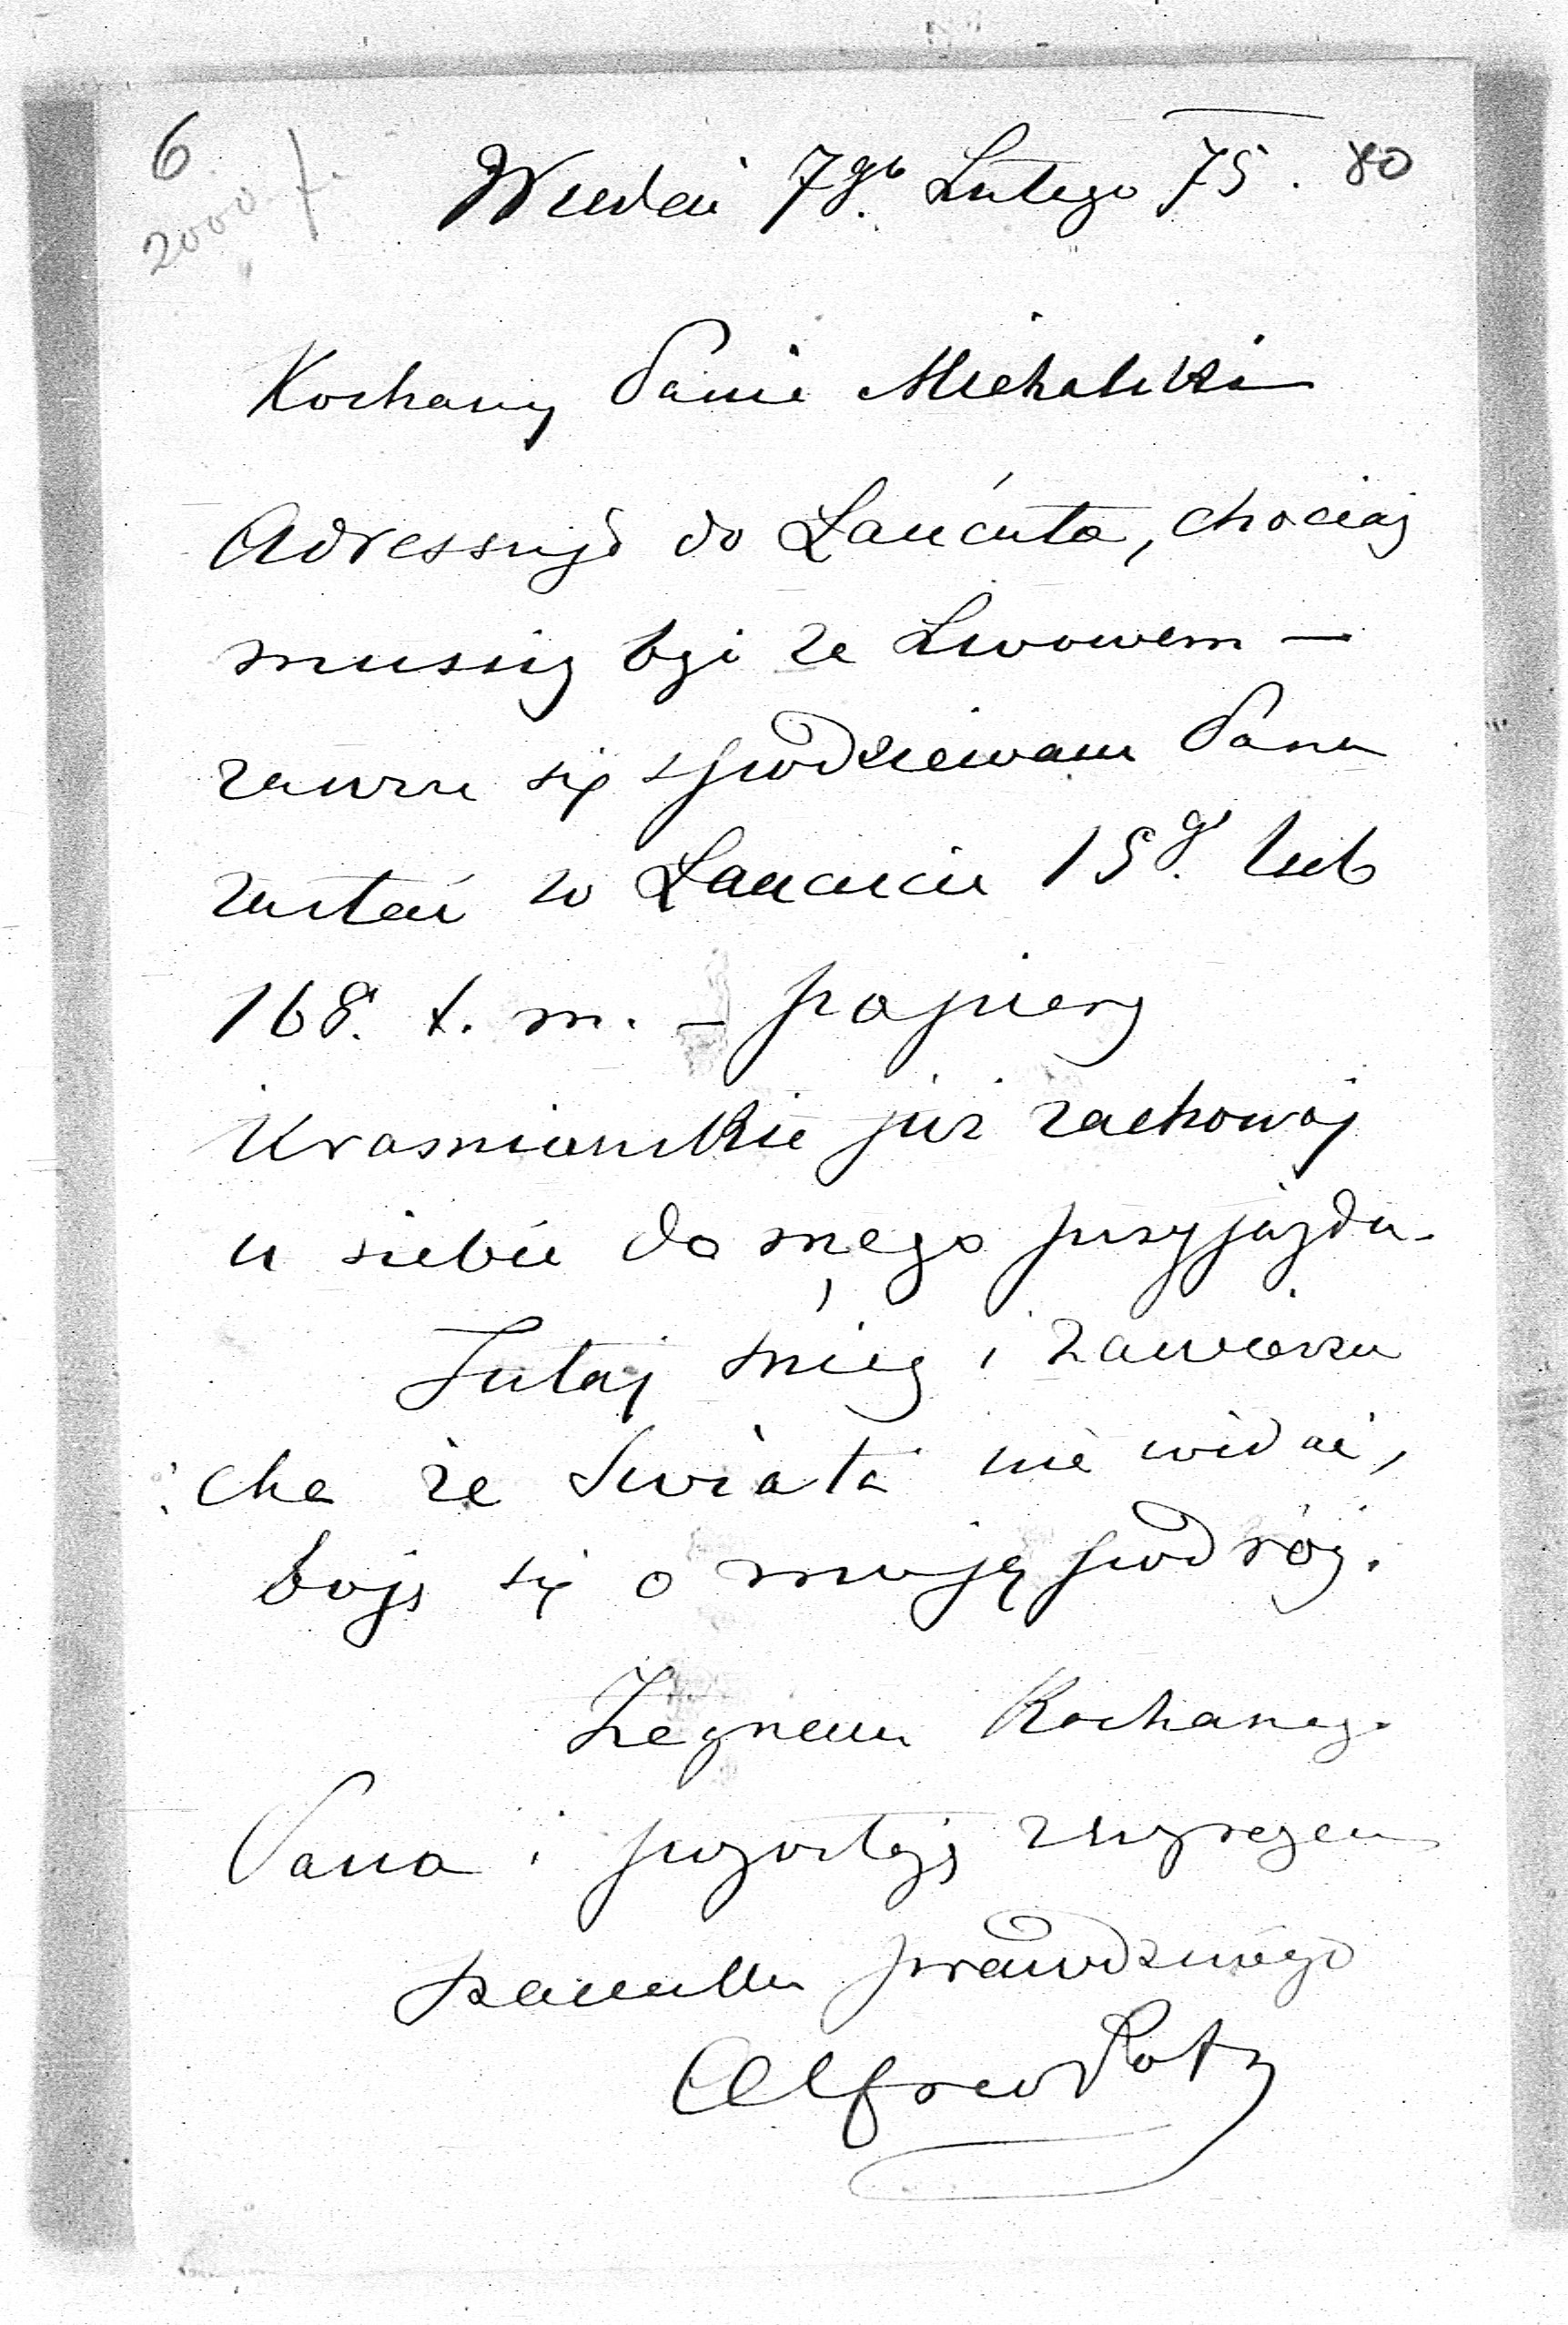 6
2000 f.
Wiedeń 7go Lutego 75. 80
Kochany Panie Michalski
Adressuję do Łańcuta, chociaj
musisz być we Lwowem —
zawsze się spodziewam Pana
zastać w Łańcucie 15go lub
16go t. m. — papiery
Krasnianskie już zachowaj
u siebie do mego przyjazdu.
Tutaj śnieg i zawieru
cha że świata nie widać,
boję się o moję podróż.
Żegnam Kochanego
Pana i pozostaję z wyrazem
szacunku prawdziwego
Alfred Potocki